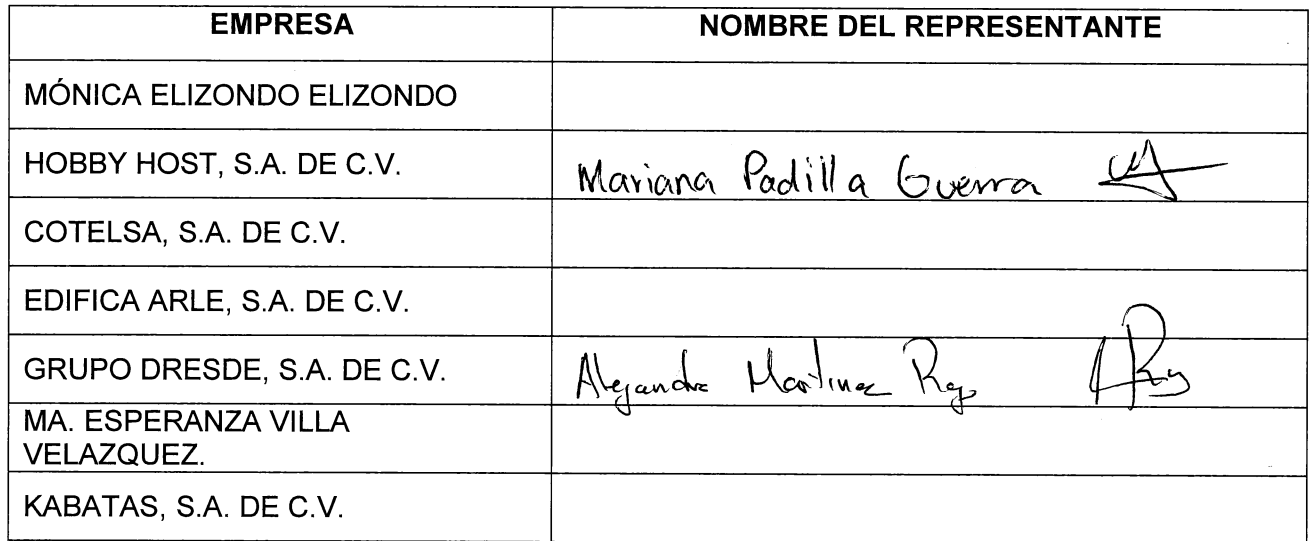 EMPRESA NOMBRE DEL REPRESENTANTE
MÓNICA ELIZONDO ELIZONDO
HOBBY HOST, S.A. DE C.V. Mariana Padilla Guerra
COTELSA, S.A. DE C.V.
EDIFICA ARLE, S.A. DE C.V.
GRUPO DRESDE, S.A. DE C.V. Alejandro Martinez
MA. ESPERANZA VILLA
VELAZQUEZ.
KABATAS, S.A. DE C.V.